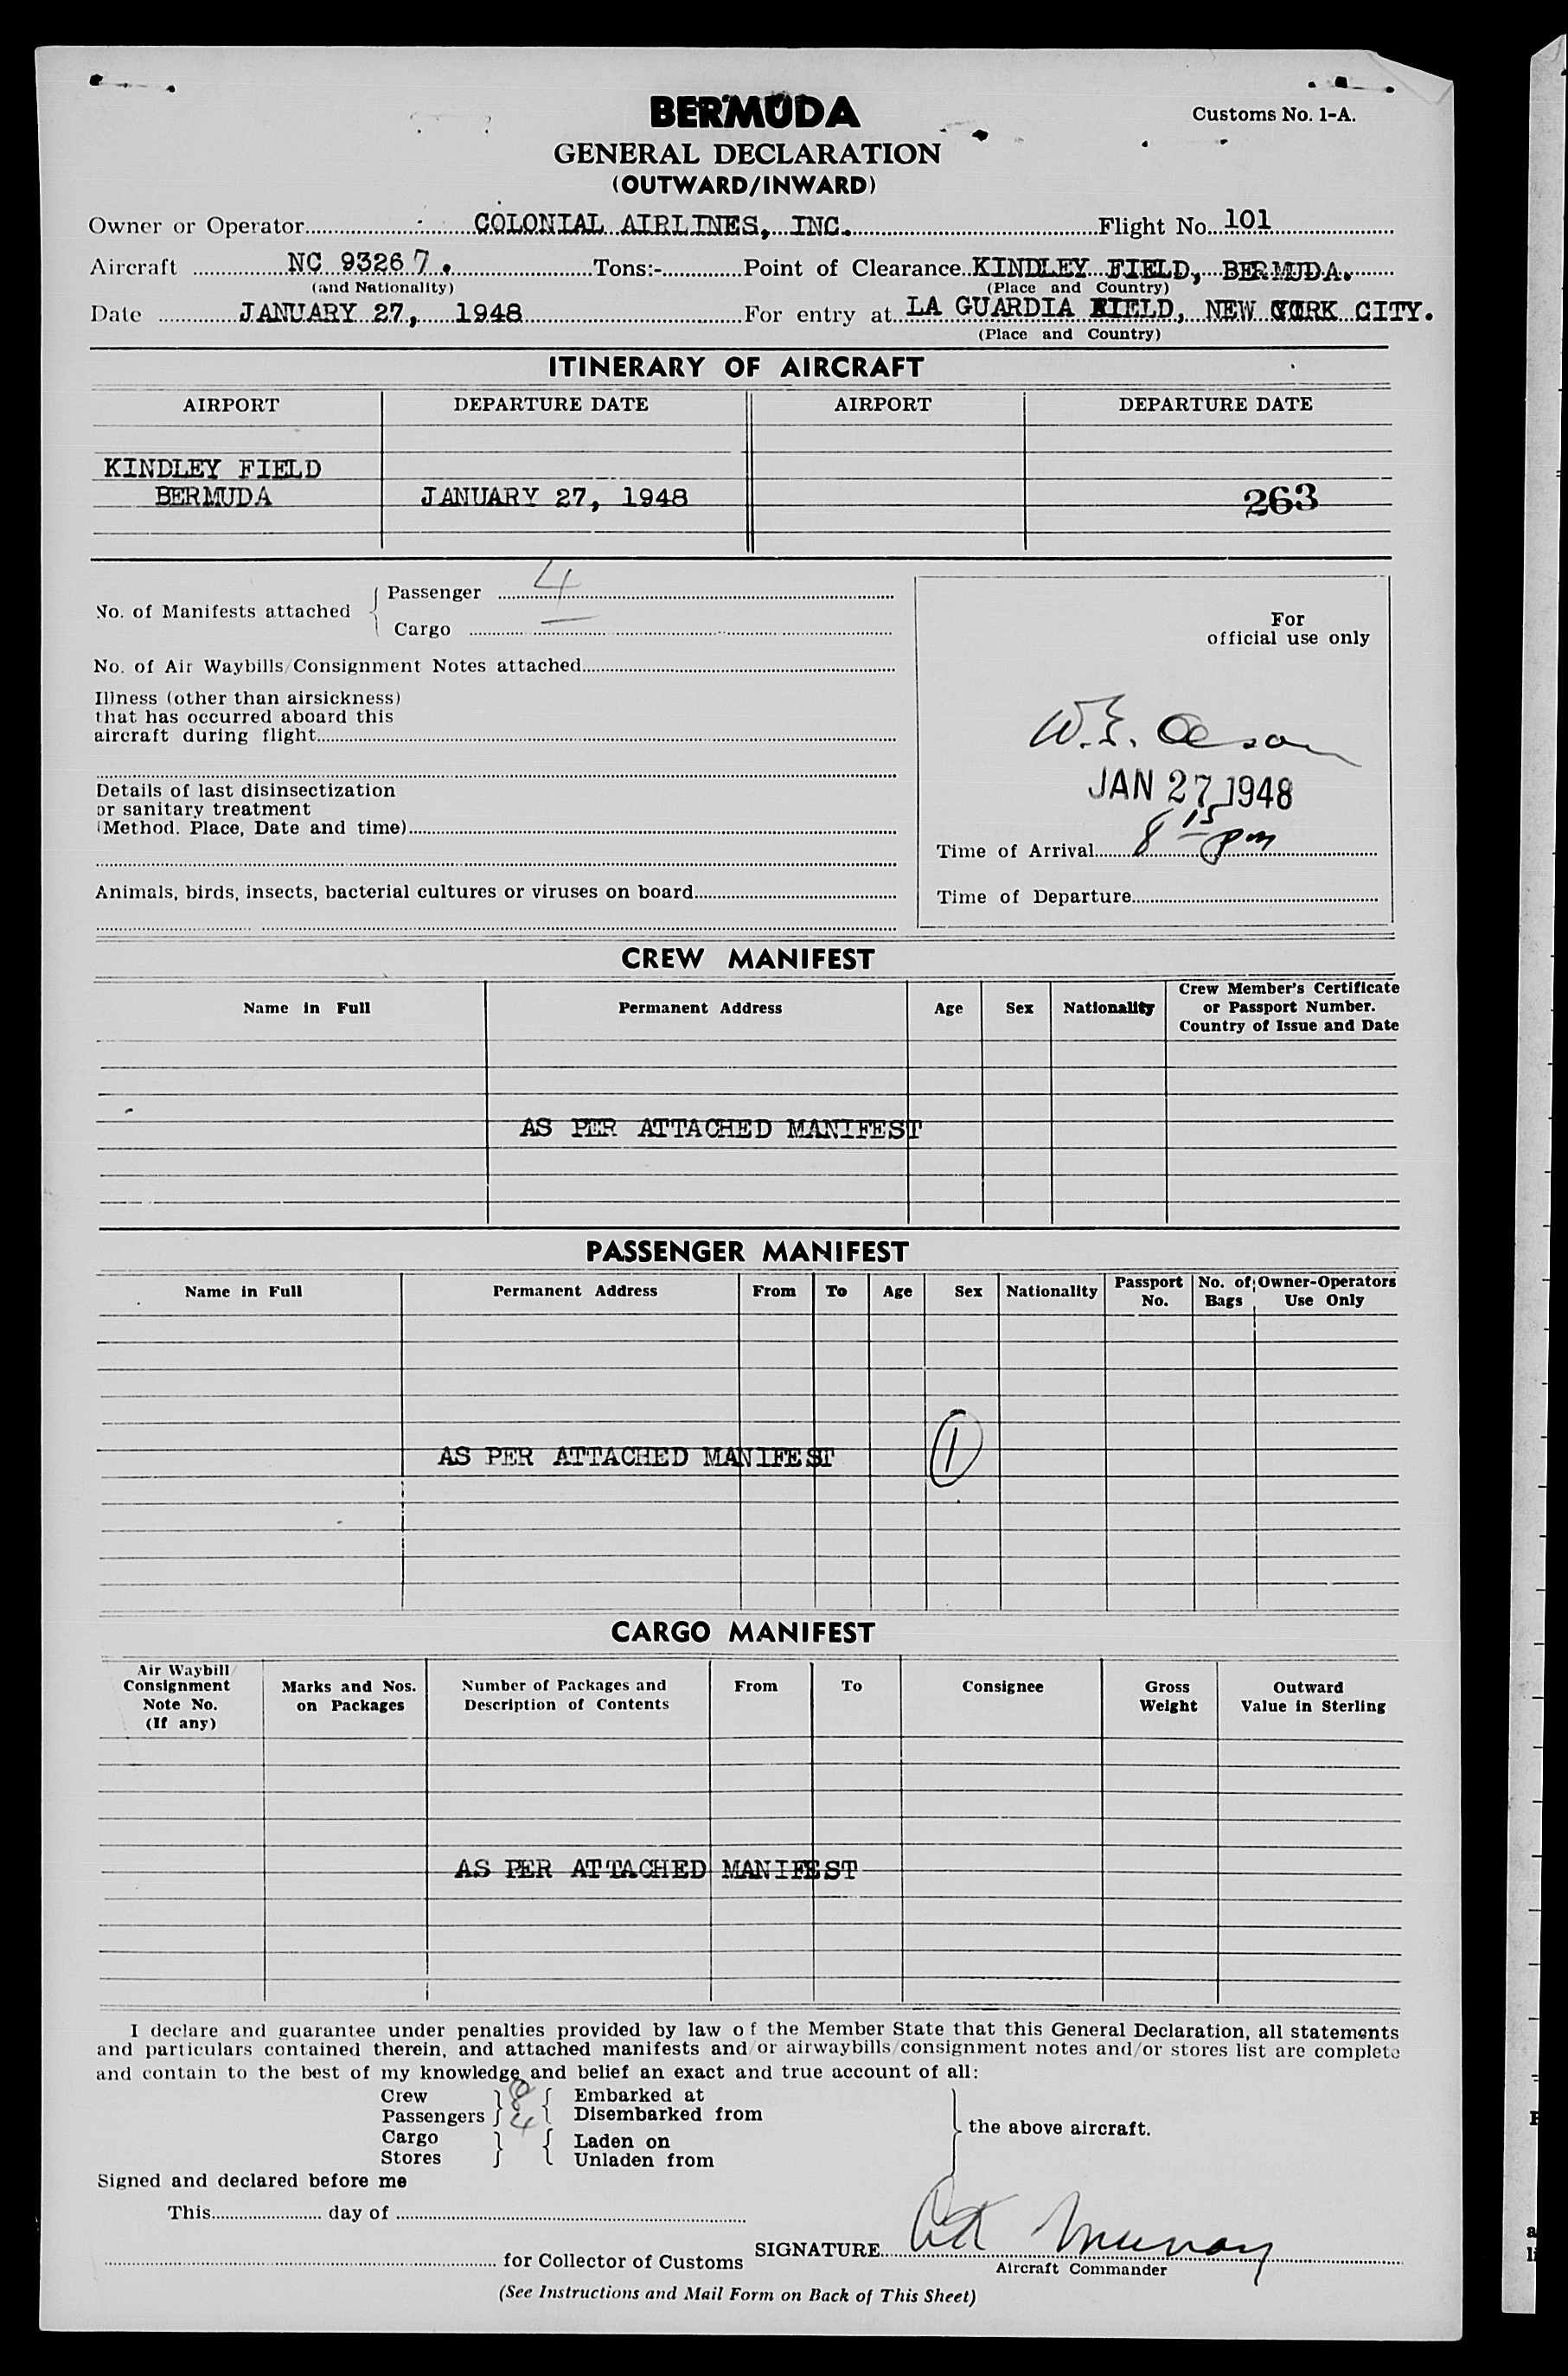 BERMUDA
Customs No. 1-A.
GENERAL DECLARATION
(OUTWARD/INWARD)
Owner or Operator COLONIAL AIRLINES, INC. Flight No. 101
Aircraft NC 93267. Tons:- Point of Clearance KINDLEY FIELD, BERMUDA.
(and Nationality) (Place and Country)
Date JANUARY 27, 1948 For entry at LA GUARDIA FIELD, NEW YORK CITY.
(Place and Country)
ITINERARY OF AIRCRAFT
AIRPORT DEPARTURE DATE AIRPORT DEPARTURE DATE
KINDLEY FIELD
BERMUDA JANUARY 27, 1948 263
No. of Manifests attached { Passenger 4
Cargo —
No. of Air Waybills/Consignment Notes attached
Illness (other than airsickness)
that has occurred aboard this
aircraft during flight
Details of last disinsectization
or sanitary treatment
(Method. Place, Date and time)
Animals, birds, insects, bacterial cultures or viruses on board
For
official use only
W.E.
JAN 27 1948
Time of Arrival 8 15 pm
Time of Departure
CREW MANIFEST
Name in Full Permanent Address Age Sex Nationality Crew Member's Certificate
or Passport Number.
Country of Issue and Date
AS PER ATTACHED MANIFEST
PASSENGER MANIFEST
Name in Full Permanent Address From To Age Sex Nationality Passport No. No. of Bags Owner-Operators Use Only
AS PER ATTACHED MANIFEST 1
CARGO MANIFEST
Air Waybill/
Consignment
Note No.
(If any)
Marks and Nos.
on Packages
Number of Packages and
Description of Contents
From To Consignee
Gross
Weight
Outward
Value in Sterling
AS PER ATTACHED MANIFEST
I declare and guarantee under penalties provided by law of the Member State that this General Declaration, all statements
and particulars contained therein, and attached manifests and/or airwaybills/consignment notes and/or stores list are complete
and contain to the best of my knowledge and belief an exact and true account of all:
Crew 8 Embarked at
Passengers 4 Disembarked from
the above aircraft.
Cargo Laden on
Stores Unladen from
Signed and declared before me
This day of
for Collector of Customs
SIGNATURE Murray
Aircraft Commander
(See Instructions and Mail Form on Back of This Sheet)